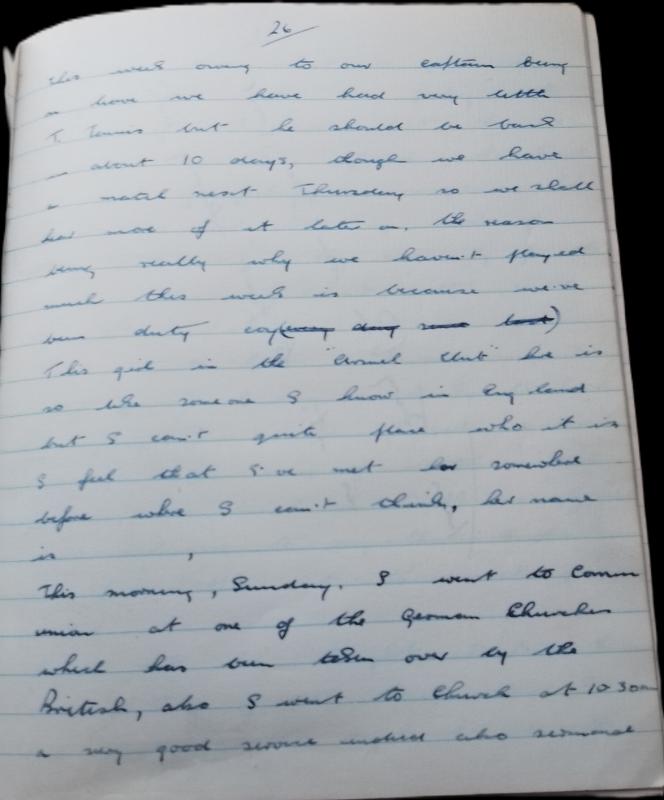 26
this week owing to our captain being
on leave we have had very little
T. Tennis but he should be back
in about 10 days, though we have
a match next Thursday so we shall
hear more of it later on, the reason
being really why we haven't played
much this week is because we've
been duty coy (every day since last)
This girl in the " Club" here is
so like someone I know in England
but I can't quite place who it is
I feel that I've met her somewhere
before where I can't think, her name
is ,
This morning, Sunday. I went to Comm
union at one of the German Churches
which has been taken over by the
British, also I went to Church at 10 30am
a very good service indeed also